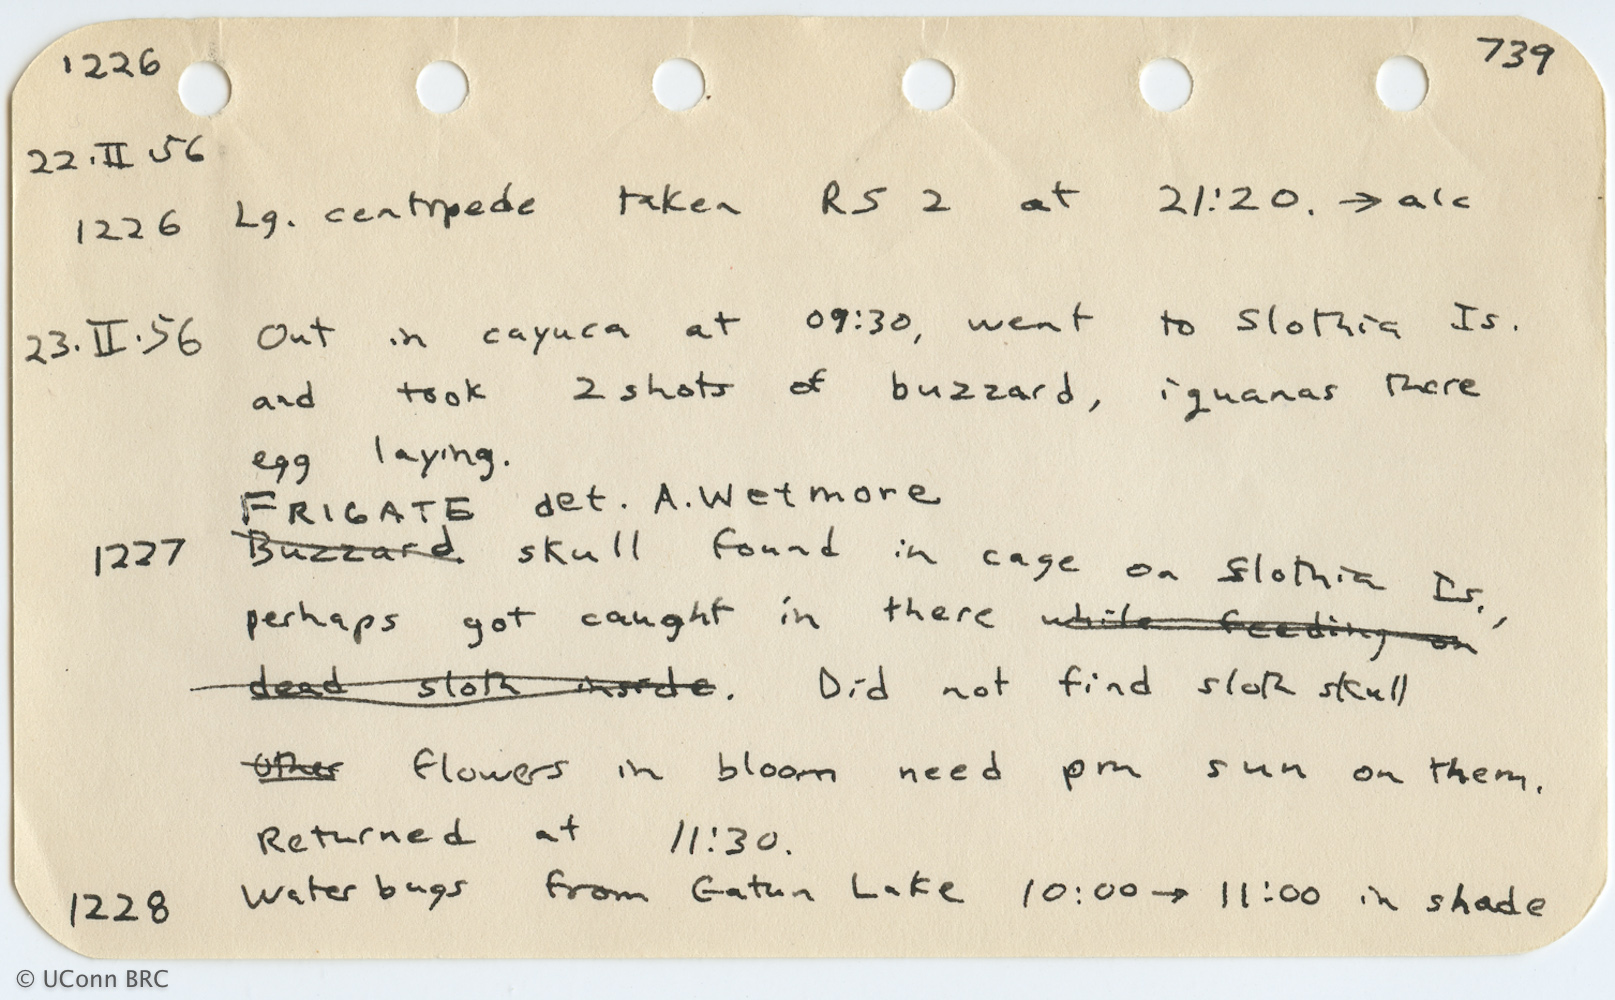 1226 739
22.II.56
1226 Lg. centipede taken RS 2 at 21:20. → alc
23.II.56 Out in cayuca at 09:30, went to Slothia Is.
and took 2 shots of buzzard, iguanas there
egg laying.
FRIGATE det. A. Wetmore
1227 Buzzard skull found in cage on Slothia Is.,
perhaps got caught in there while feeding on
dead sloth inside. Did not find sloth skull
Other flowers in bloom need pm sun on them.
Returned at 11:30.
1228 Water bugs from Gatun Lake 10:00 → 11:00 in shade
© UConn BRC